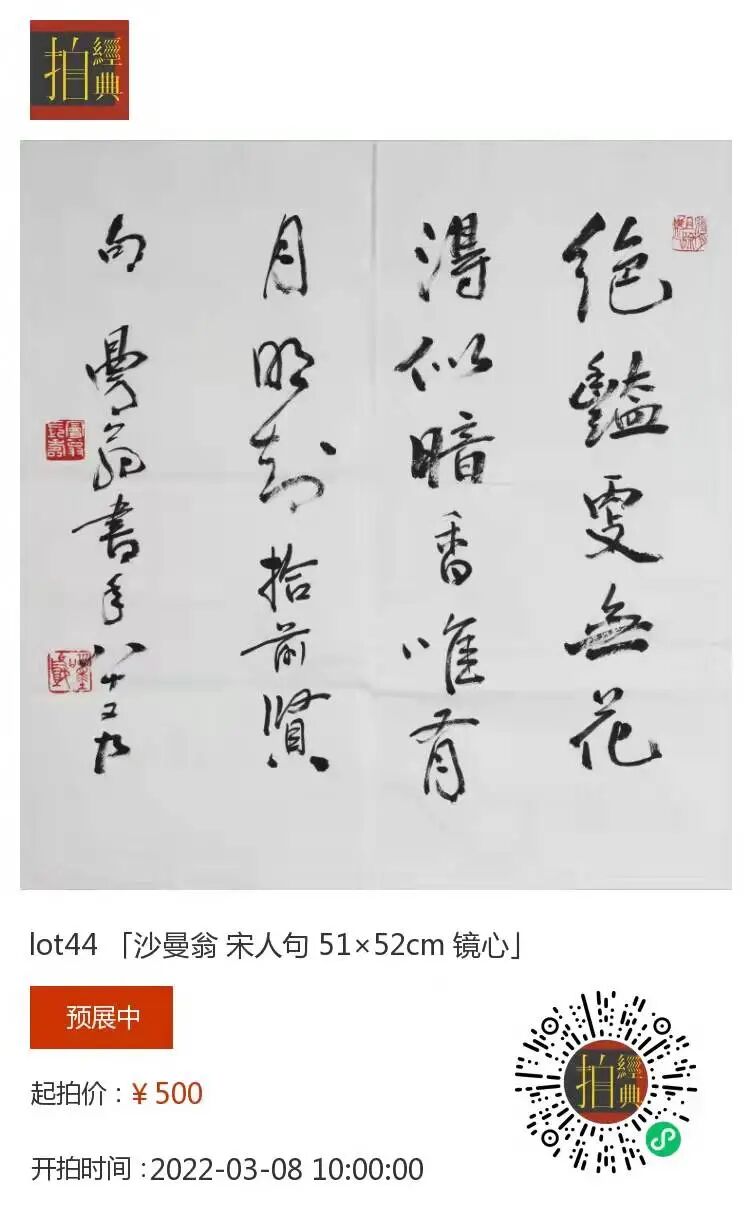 經典拍
絶豔更無花
得似暗香唯有
月明知拾前賢
句 曼翁書年八十又九
曼翁長壽
lot44 「沙曼翁 宋人句 51×52cm 镜心」
预展中
起拍价：¥ 500
开拍时间：2022-03-08 10:00:00
經典拍